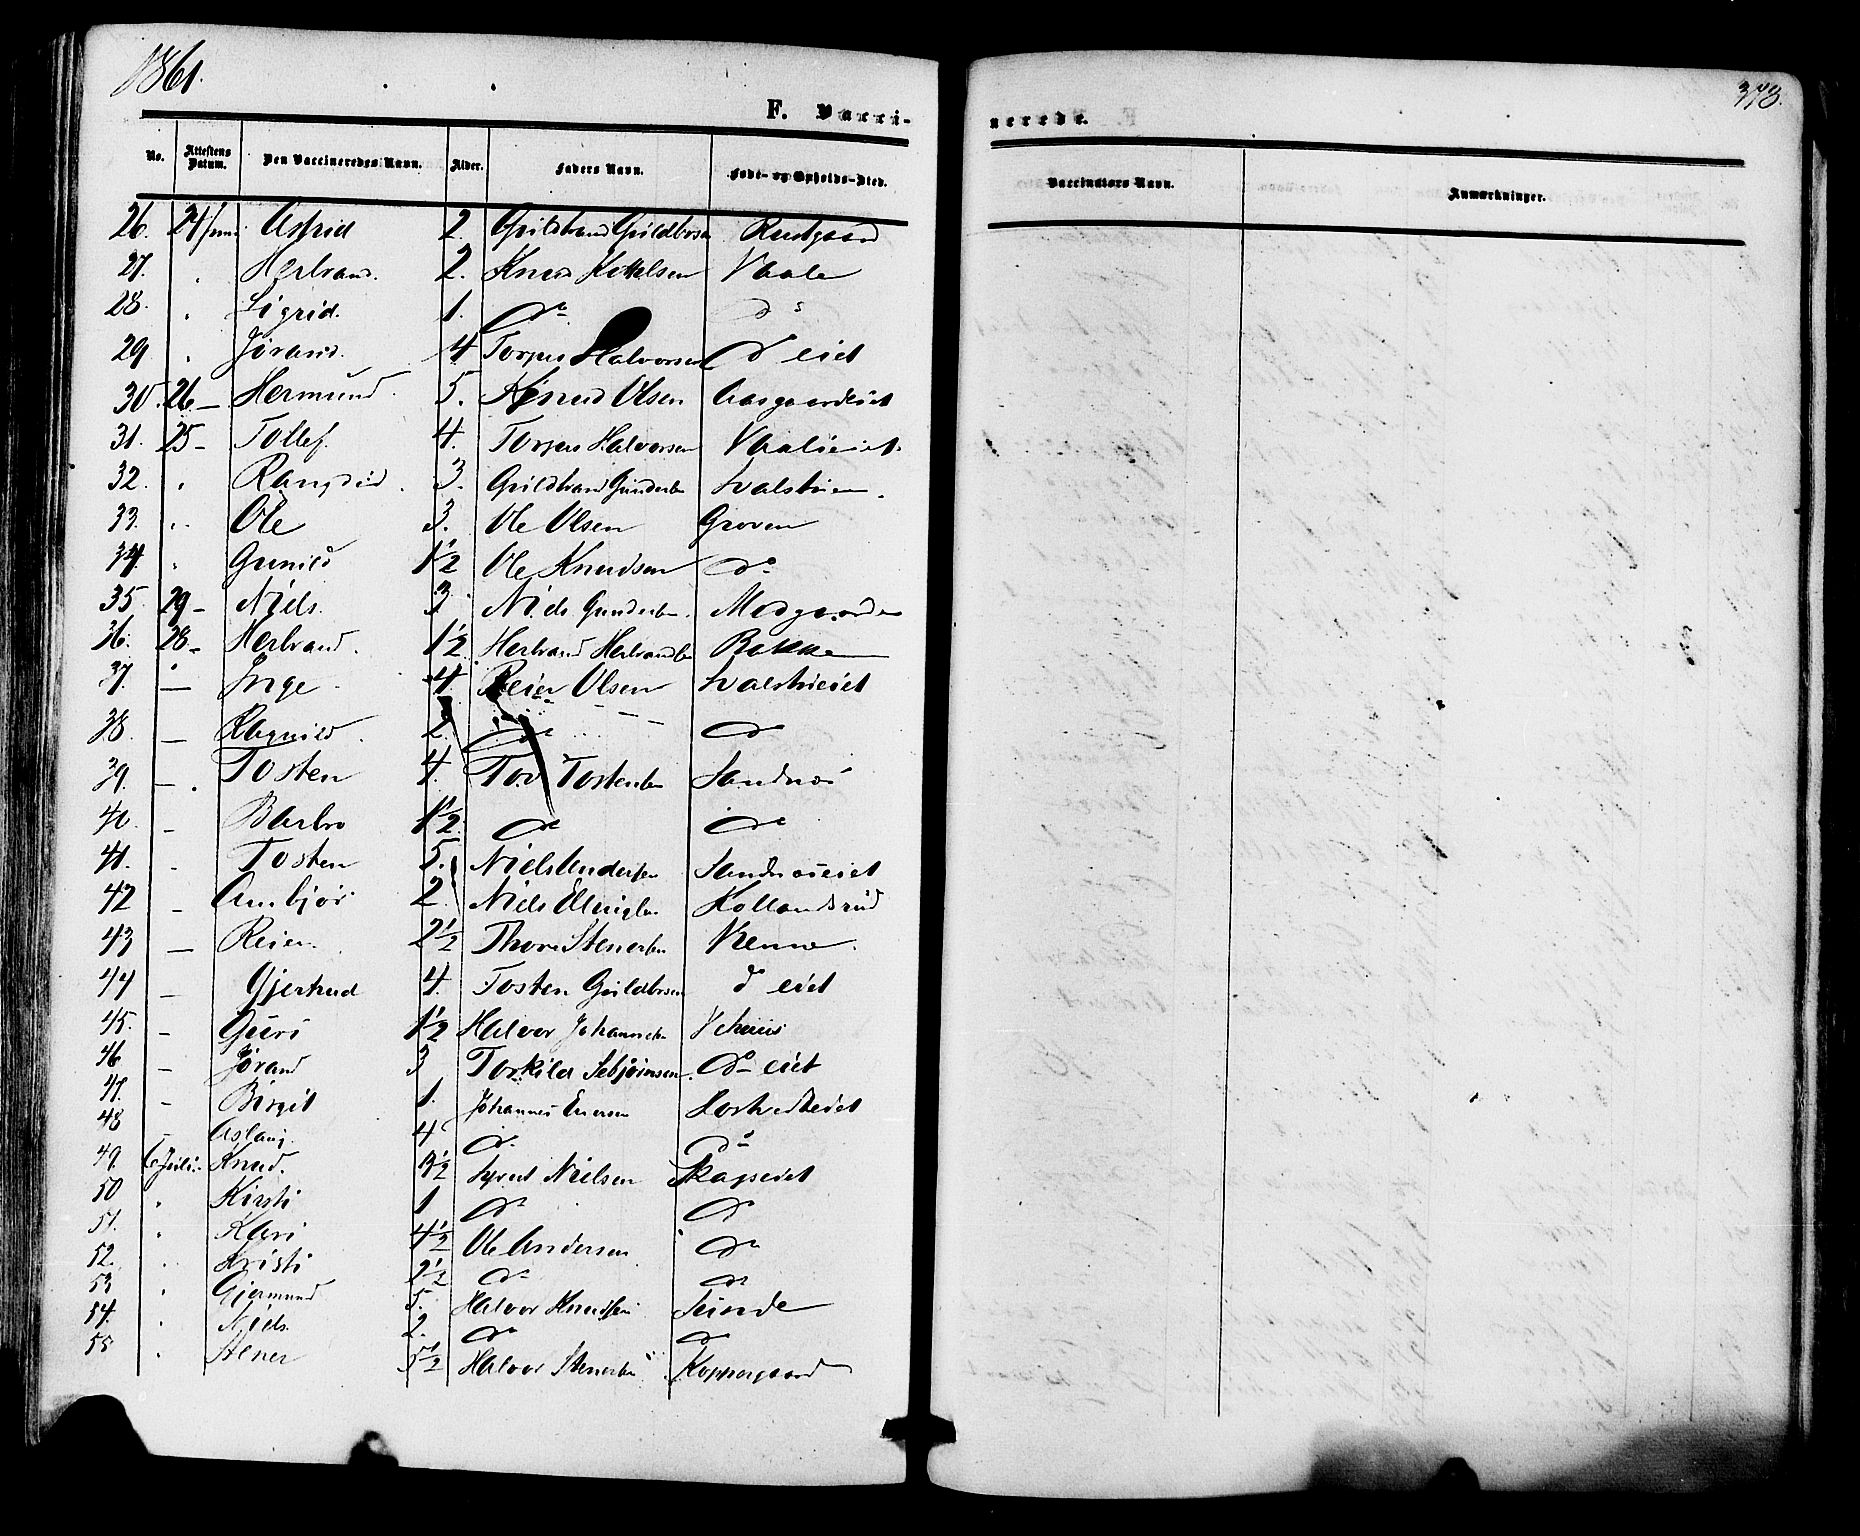 1861.
373.
F. Vacci-
nerede.
No. Attestens Datum. Den Vaccineredes Navn. Alder. Faders Navn. Føde- og Opholds-Sted.
Vaccinators Navn. Anmærkninger.
26. 24/Juni Astrid 2. Guldbrand Guldbrsen Rustgaard
27. " Herbrand. 2. Knud Kittelsen Vaale
28. " Sigrid. 1. do do
29 " Jørand. 4 Torger Halvorsen do eiet
30. 26 – Hermund. 5. Knud Olsen Aasgaardeiet
31. 25 – Tollef. 4. Torger Halvorsen Vaaleeiet.
32. " Rangdid. 3. Guldbrand Gundersen
33. " Ole 3. Ole Olsen Groven
34. " Gunild 1½ Ole Knudsen do
35. 29 – Niels. 3 Niels Gundersen. Modgaarden
36. 28 – Herbrand. 1½ Herbrand Herbrandsen Bakken
37. – Inge. 4. Reier Olsen
38. – Ragnild. 2. do do
39. – Tosten 4. Tov Tostensen Sandnes
40. – Barbro 1½ do do
41. – Tosten 5. Niels Andersen Sandneseiet
42 – Ambjør 2. Niels Ellingsen Kollandsrud
43 – Reier. 2½ Thore Stenersen
44 – Gjertrud 4. Tosten Guldbrsen do eiet
45. – Guri 1½ Halvor Johannesen
46 – Jørand 3 Torkild Sebjørnsen do eiet
47. – Birgit 1. Johannes Eriksen
48 – Aslaug. 4 do do
49. 6 Juli. Knud. 9½ Syvert Nielsen Skagseiet
50 " Kirsti 1 do do
51. " Kari 4½ Ole Andersen do
52. " Kristi 2½ do do
53 " Gjermund 5. Halvor Knudsen
54. " Niels. 2. do do
55 " Stener 5½ Halvor Stenersen Koppergaard